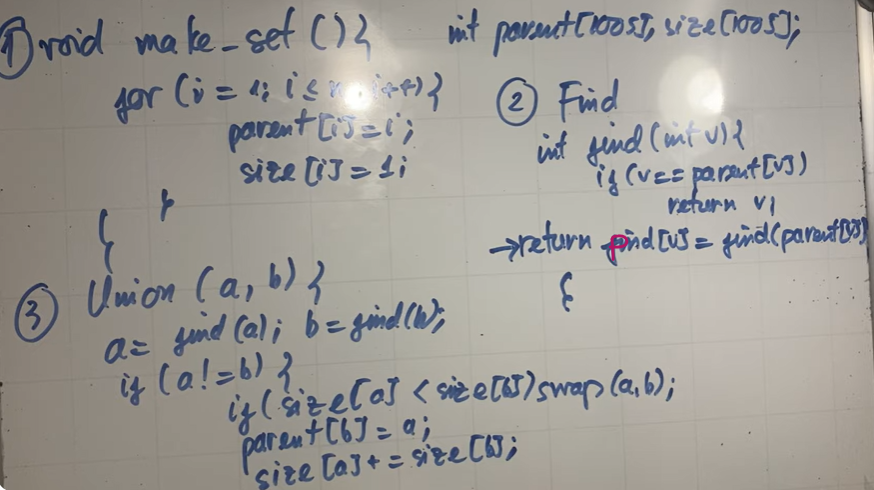 ① void make_set () {
int parent[1005], size[1005];
for (i = 1; i ≤ n; i++) {
parent[i] = i;
size[i] = 1;
}
}
② Find
int find (int v) {
if (v == parent[v])
return v;
→ return find[v] = find(parent[v])
}
③ Union (a, b) {
a = find (a); b = find(b);
if (a != b) {
if (size[a] < size[b]) swap(a, b);
parent[b] = a;
size[a] += size[b];